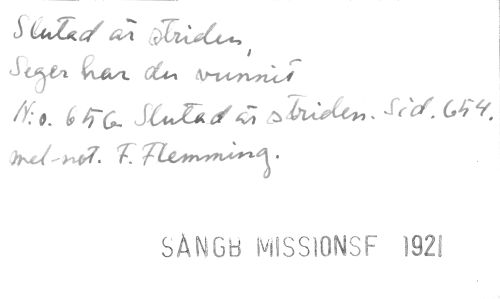 Slutad är striden,
Seger har du vunnit
N:o. 656 Slutad är striden. Sid. 654.
mel-not. F. Flemming.
SÅNGB MISSIONSF 1921